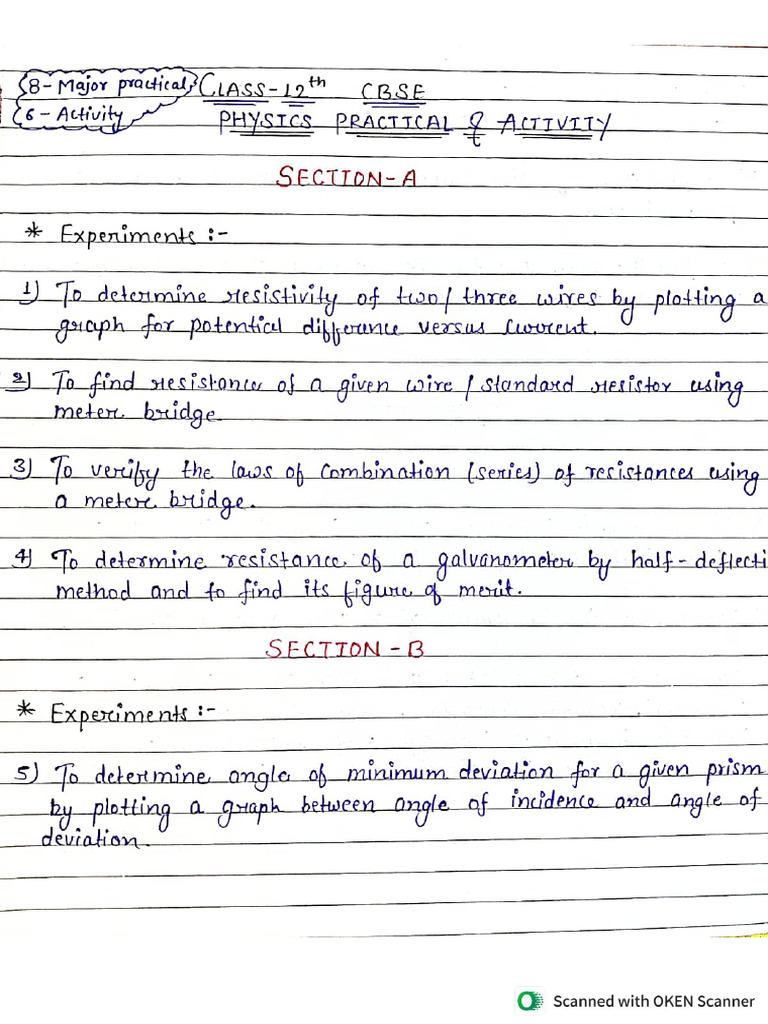 8- Major practical CLASS-12th CBSE
6 - Activity PHYSICS PRACTICAL & ACTIVITY
SECTION-A
* Experiments :-
1) To determine resistivity of two/three wires by plotting a
graph for potential difference versus current.
2) To find resistance of a given wire / standard resistor using
meter bridge.
3) To verify the laws of combination (series) of resistances using
a meter bridge.
4) To determine resistance of a galvanometer by half-deflecti
method and to find its figure of merit.
SECTION - B
* Experiments :-
5) To determine angle of minimum deviation for a given prism
by plotting a graph between angle of incidence and angle of
deviation.
Scanned with OKEN Scanner